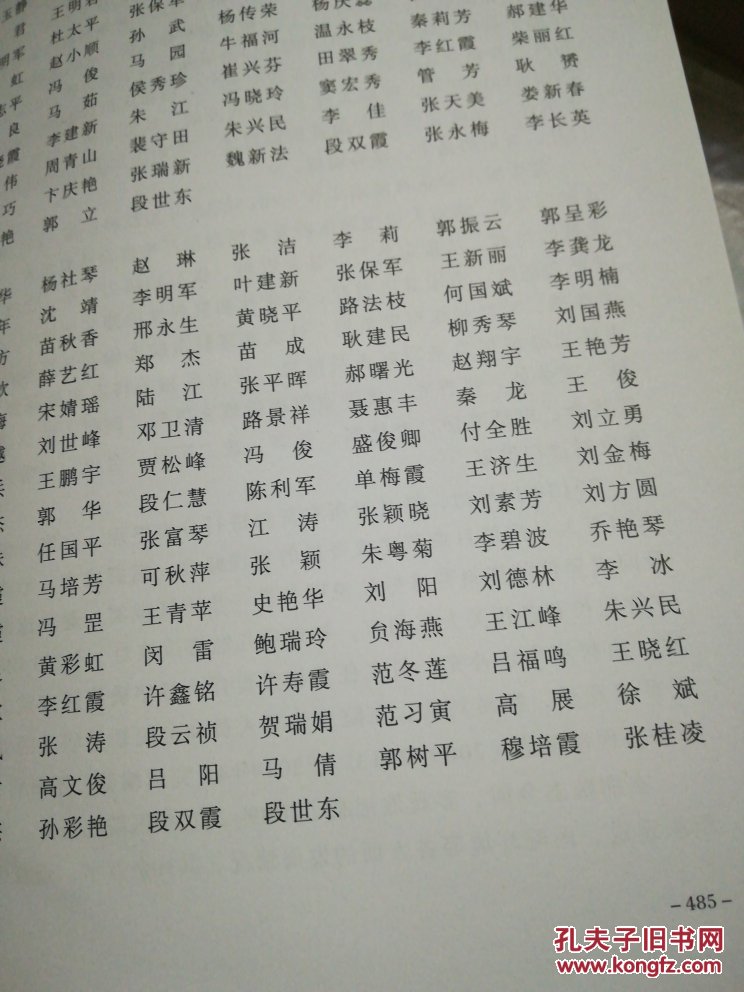 静
君 王明
军 杜太平 张保军
虹 赵小顺 孙武 杨传荣
平 冯俊 马园 牛福河 温永枝 秦莉芳 郝建华
良 马茹 侯秀珍 崔兴芬 田翠秀 李红霞 柴丽红
霞 李建新 朱江 冯晓玲 窦宏秀 管芳 耿
伟 周青山 裴守田 朱兴民 李佳 张天美 娄新春
巧 卞庆艳 张瑞新 魏新法 段双霞 张永梅 李长英
艳 郭立 段世东
华 杨社琴 赵琳 张洁 李莉 郭振云 郭呈彩
年 沈靖 李明军 叶建新 张保军 王新丽 李龚龙
方 苗秋香 邢永生 黄晓平 路法枝 何国斌 李明楠
薛艺红 郑杰 苗成 耿建民 柳秀琴 刘国燕
宋婧瑶 陆江 张平晖 郝曙光 赵翔宇 王艳芳
刘世峰 邓卫清 路景祥 聂惠丰 秦龙 王俊
王鹏宇 贾松峰 冯俊 盛俊卿 付全胜 刘立勇
郭华 段仁慧 陈利军 单梅霞 王济生 刘金梅
任国平 张富琴 江涛 张颖晓 刘素芳 刘方圆
马培芳 可秋萍 张颖 朱粤菊 李碧波 乔艳琴
冯罡 王青苹 史艳华 刘阳 刘德林 李冰
黄彩虹 闵雷 鲍瑞玲 贠海燕 王江峰 朱兴民
李红霞 许鑫铭 许寿霞 范冬莲 吕福鸣 王晓红
张涛 段云祯 贺瑞娟 范习寅 高展 徐斌
高文俊 吕阳 马倩 郭树平 穆培霞 张桂凌
孙彩艳 段双霞 段世东
-485-
孔夫子旧书网
www.kongfz.com